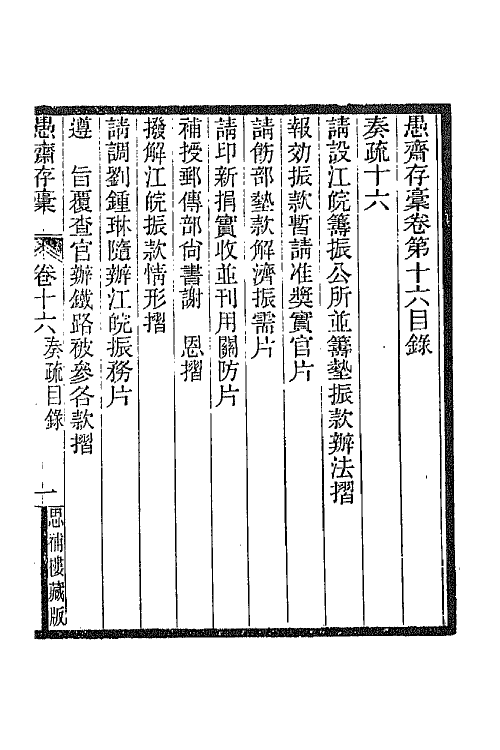 愚齋存稾卷第十六目錄
奏疏十六
請設江皖籌振公所並籌墊振款辦法摺
報効振款暫請准奬實官片
請飭部墊款解濟振需片
請印新捐實收並刊用關防片
補授郵傳部尙書謝　恩摺
撥解江皖振款情形摺
請調劉鍾琳隨辦江皖振務片
遵　旨覆查官辦鐵路被參各款摺
愚齋存稾　卷十六　奏疏目錄　一　思補樓藏版